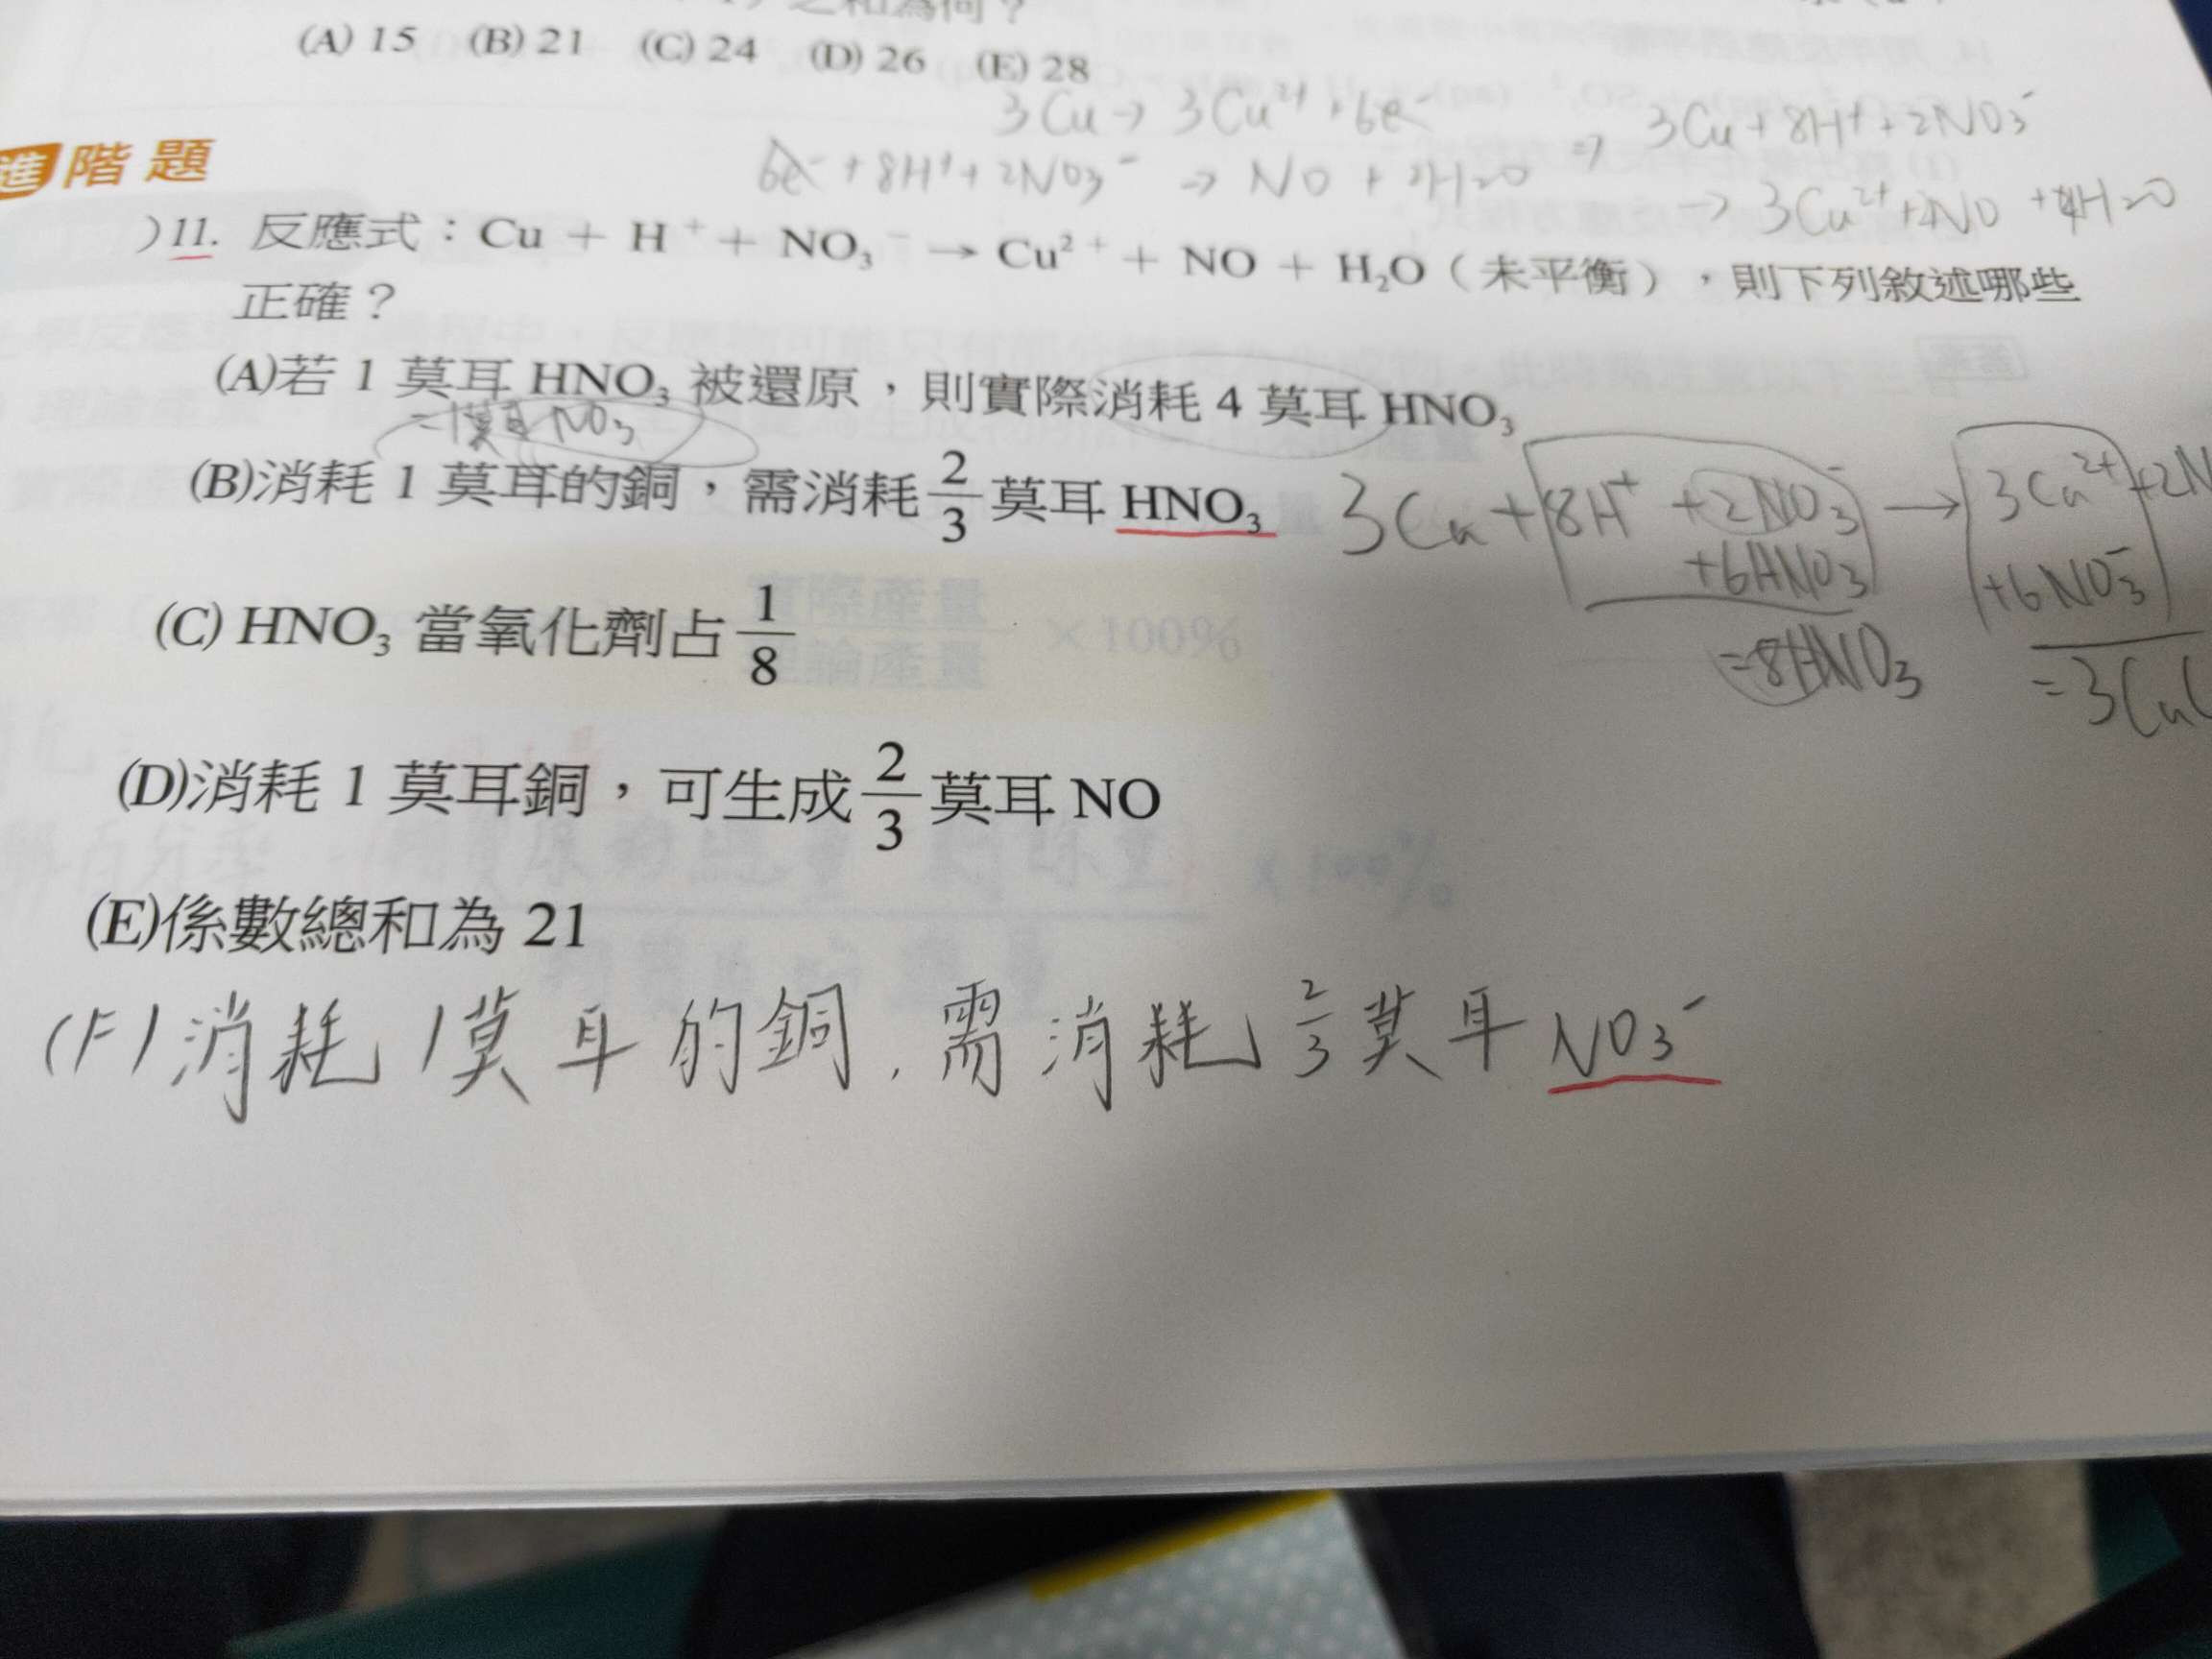 之和為何？
(A) 15 (B) 21 (C) 24 (D) 26 (E) 28
3Cu → 3Cu²⁺ + 6e⁻
6e⁻ + 8H⁺ + 2NO₃⁻ → NO + 2H₂O ⇒ 3Cu + 8H⁺ + 2NO₃⁻
→ 3Cu²⁺ + 2NO + 4H₂O
進階題
)11. 反應式：Cu + H⁺ + NO₃⁻ → Cu²⁺ + NO + H₂O（未平衡），則下列敘述哪些
正確？
(A)若 1 莫耳 HNO₃ 被還原，則實際消耗 4 莫耳 HNO₃
=1莫耳NO₃
(B)消耗 1 莫耳的銅，需消耗 2/3 莫耳 HNO₃
3Cu + 8H⁺ + 2NO₃⁻ → 3Cu²⁺ + 2N
+6HNO₃ +6NO₃⁻
=8HNO₃ =3Cu(
(C) HNO₃ 當氧化劑占 1/8
(D)消耗 1 莫耳銅，可生成 2/3 莫耳 NO
(E)係數總和為 21
(F)消耗1莫耳的銅，需消耗 2/3 莫耳 NO₃⁻